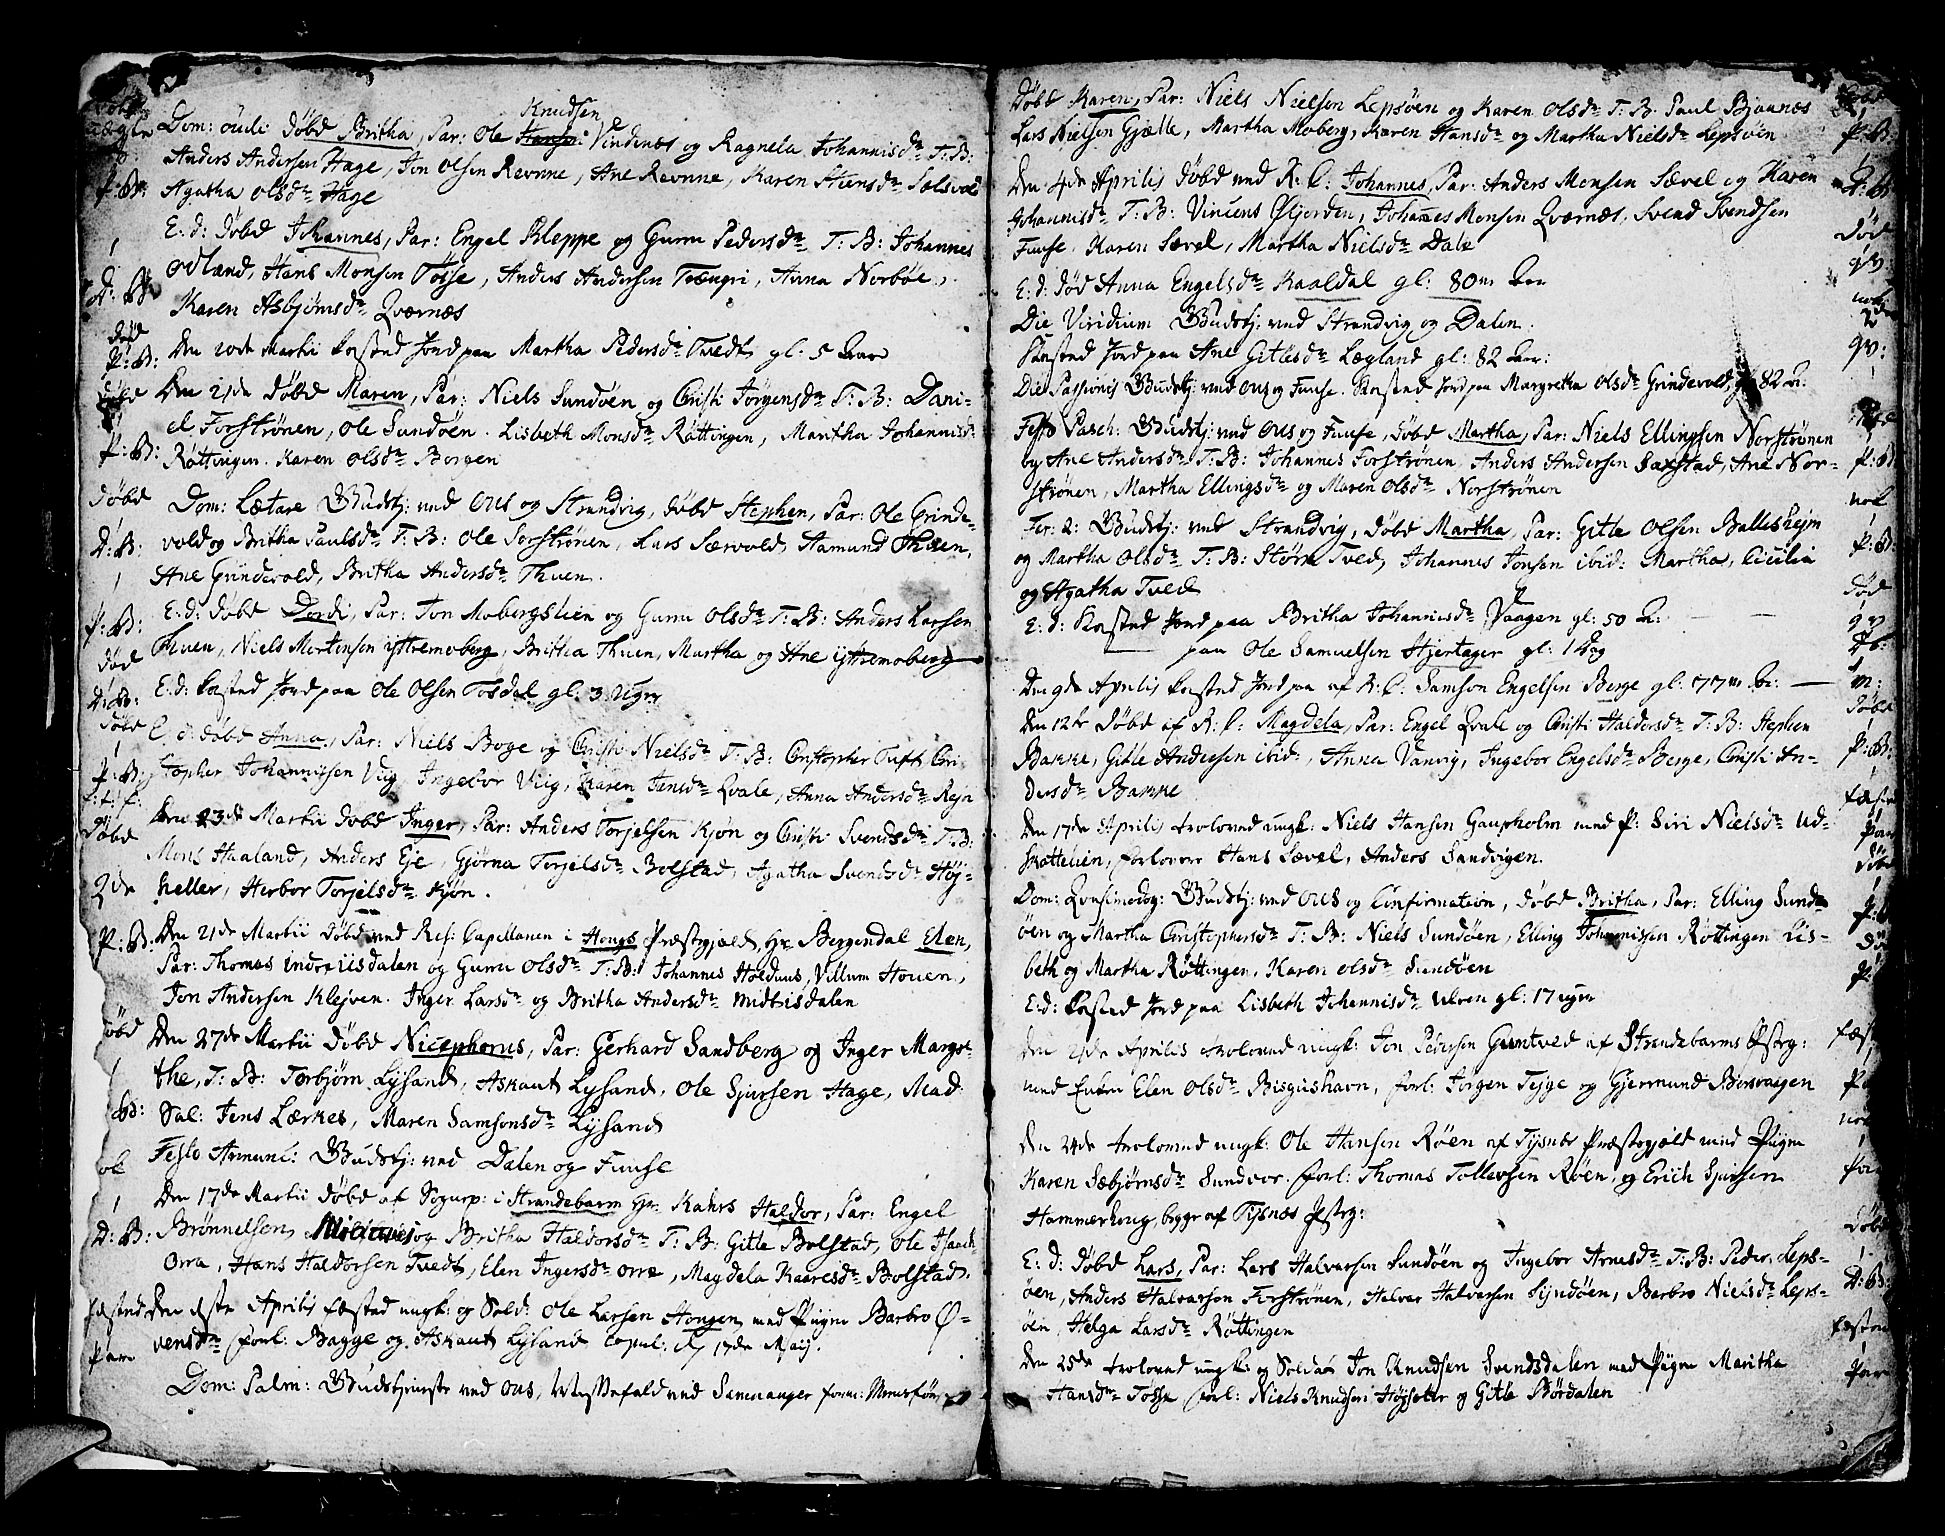 Knudsen
Dom: oculi døbd Britha, Par: Ole Hansen Vindenes og Ragnela Johannisdr T: B:
Anders Andersen Hage, Jon Olsen Revnne, Ane Revnne, Karen Steensdr Solsvol
Agatha Olsdr Hage
E: d: døbd Johannes, Par: Engel Kleppe og Guru Pedersdr T: B: Johannes
Odland, Hans Monsen Tøsse, Anders Andersen Trængri, Anna Norbøe,
Karen Asbjørnsdr Qværnæs
Den 20de Martii kasted Jord paa Martha Pedersdr Tvedt gl: 5 Aar
Den 21de døbd Maren, Par: Niels Sundøen og Christi Jørgensdr T: B: Dani-
el Forstrønen, Ole Sundøen. Lisbeth Monsdr Røttingen, Maritha Johannisdr
Røttingen. Karen Olsdr Borgen
Dom: Lætare Gudstj: ved Ous og Strandvig, døbd Stephen, Par: Ole Grinde-
vold og Britha Paulsdr T: B: Ole Forstrønen, Lars Særvold, Aamund Thuen,
Ane Grindevold, Britha Andersdr Thuen.
E: d: døbd Dordi, Par: Jon Mobergslien og Guru Olsdr T: B: Anders Larsen
Thuen, Niels Mortensen Yttremoberg, Britha Thuen, Martha og Ane Yttremoberg
E: d: kasted Jord paa Ole Olsen Tosdal gl: 3 Uger
E: d: døbd Anna, Par: Niels Boge og Christi Nielsdr T: B: Christopher Tufft Chri-
stopher Johannissen Viig, Ingebor Viig, Karen Jensdr Qvale, Anna Andersdr Røjn
Den 23de Martii døbd Inger, Par: Anders Torjelsen Kjøn og Christi Svendsdr T: B:
Mons Haaland, Anders Eje, Gjørna Torjelsdr Bolstad, Agatha Svendsdr Høj-
heller, Herbor Torjelsdr Kjøn.
Den 21de Martii døbd ved Res: Capellanen i Hougs Præstgjæld, Hr: Beggendal Elen,
Par: Thomas Indreiisdalen og Guru Olsdr T: B: Johannes Holduus, Villum Houen,
Jon Andersen Klejven. Inger Larsdr og Britha Andersdr Midtrisdalen
Den 27de Martii døbd Nicephorus, Par: Gerhard Sandberg og Inger Margre-
the, T: B: Torbjørn Lysand, Askaut Lysand, Ole Sjursen Hage, Mad:
Sal: Jens Lærkes, Maren Samsonsdr Lysand
Festo Annunc: Gudstj: ved Dalen og Fuuse
Den 17de Martii døbd af Sognepr: i Strandebarm Hr: Kahrs Haldor, Par: Engel
Brønnelsen og Britha Haldorsdr T: B: Gitle Bolstad, Ole Isaach-
Orra, Hans Haldorsen Tvedt, Elen Ingersdr Orre, Magdela Kaaresdr Bolstad.
Den 1ste Aprilis fæsted ungk: og Sold: Ole Larsen Hougen med Pigen Barbro Ø-
vensdr forl: Bagge og Askaut Lysand copul: d 17de Maij.
Dom: Palm: Gudstjeneste ved Ous, Messefald ved Samnanger form:
Døbd Karen, Par: Niels Nielsen Lepsøen og Karen Olsdr T: B: Paul Bjaanes
Lars Nielsen Gjelle, Martha Moberg, Karen Hansdr og Martha Nielsdr Lepsøen
Den 4de Aprilis døbd ved R: C: Johannes, Par: Anders Monsen Sævel og Karen
Johannisdr T: B: Vincens Gljerden, Johannes Monsen Qværnæs. Svend Svendsen
Fuuse. Karen Sævel, Martha Nielsdr Dale
E: d: død Anna Engelsdr Kaaldal gl: 80 Aar
Die Viridium Gudstj: ved Strandvig og Dalen.
Kasted Jord paa Ane Gitlesdr Lægland gl: 82 Aar:
Die Passionis Gudstj: ved Ous og Fuuse. Kasted Jord paa Margretha Olsdr Grindevold, gl 82 A:
Festo Pasch: Gudstj: ved Ous og Fuuse, døbd Martha, Par: Niels Ellingsen Norstrønen
og Ane Andersdr T: B: Johannes Forstrønen, Anders Andersen Saxstad, Ane Nor-
strønen, Martha Ellingsdr og Maren Olsdr Norstrønen
Fer: 2: Gudstj: ved Strandvig, døbd Martha, Par: Gitle Olsen Ballesheim
og Martha Olsdr T: B: Størk Tved, Johannes Jonsen ibid: Martha, Cicilia
og Agatha Tved
E: d: Kasted Jord paa Britha Johannisdr Vaagen gl: 50 A:
paa Ole Samuelsen Hjertager gl: 1 Dag
Den 9de Aprilis kasted Jord paa af R: C: Samson Engelsen Berge gl: 77 A:
Den 12te døbd af R: C: Magdela, Par: Engel Qvale og Christi Haldorsdr T: B: Stephen
Bakke, Gitle Andersen ibid:, Anna Vanvig, Ingebor Engelsdr Berge, Christi An-
dersdr Bakke
Den 17de Aprilis troloved ungk: Niels Hansen Gaupholm med P: Siri Nielsdr Ud-
skottelien, forlovere Hans Sævel, Anders Sandvigen.
Dom: Qvasimodog: Gudstj: ved Ous og Confirmation, døbd Britha, Par: Elling Sund-
øen og Martha Christophersdr T: B: Niels Sundøen, Elling Johannissen Røttingen Lis-
beth og Martha Røttingen, Karen Olsdr Sundøen
E: d: kasted Jord paa Lisbeth Johannisdr Ulven gl: 17 uger
Den 21de Aprilis troloved ungk: Jon Pedersen Guntved af Strandebarms Pstrg:
med Enken Elen Olsdr Bisgushavn, forl: Jørgen Tejge og Gjermund Børsvaagen
Den 24de troloved ungk: Ole Hansen Røen af Tysnes Præstegjeld med Pigen
Karen Sæbjørnsdr Sundvor. forl: Thomas Tollevsen Røen, og Erich Sjursen
Hammerhoug, begge af Tysnæs Pstrg:
E: d: døbd Lars, Par: Lars Halvarsen Sundøen og Ingebor Arnesdr T: B: Peder Leps-
øen, Anders Halvarson Forstrønen, Halvor Halvorsen Syndøen, Barbro Nielsdr Leps-
øen, Helga Larsdr Røttingen
Den 25de troloved ungk: og Soldat Jon Knudsen Svendsdalen med Pigen Maritha
Hansdr Tosse forl: Niels Knudsen Højseter og Gitle Børdalen